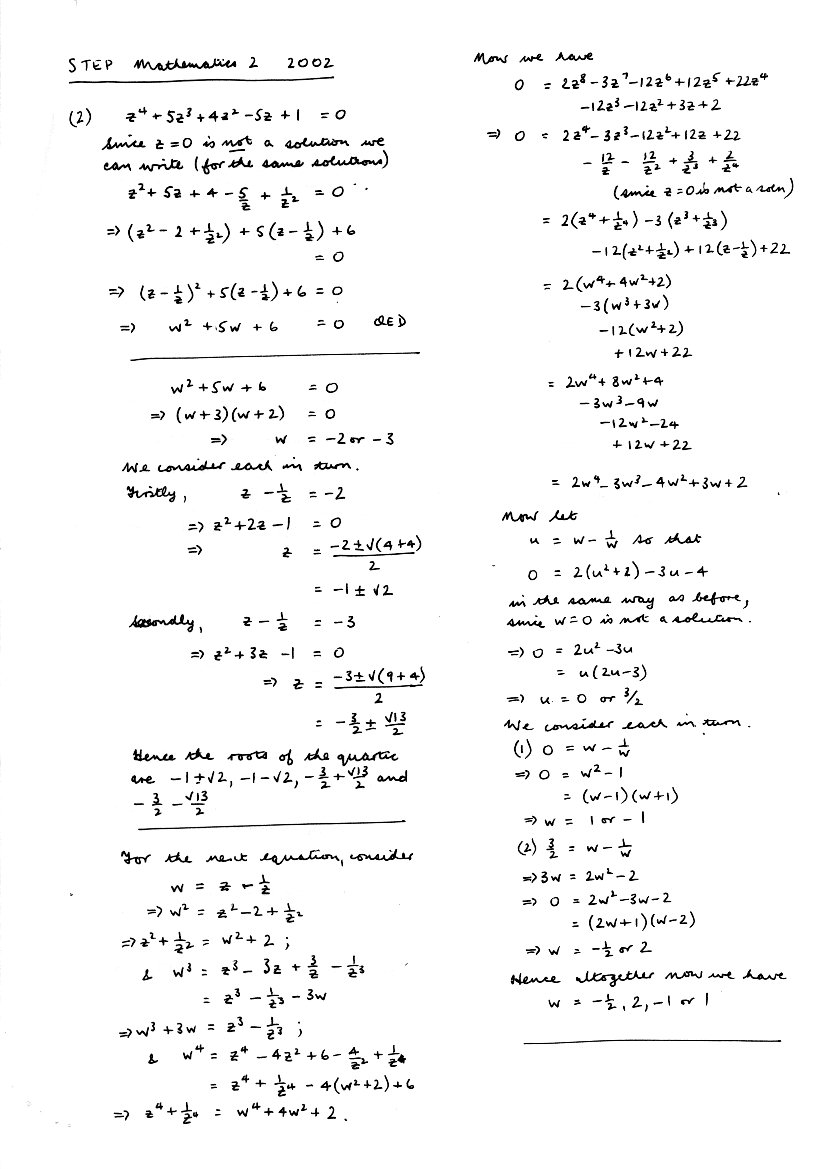 STEP Mathematics 2 2002
(2) z⁴ + 5z³ + 4z² - 5z + 1 = 0
Since z = 0 is not a solution we
can write (for the same solutions)
z² + 5z + 4 - 5/z + 1/z² = 0
⇒ (z² - 2 + 1/z²) + 5(z - 1/z) + 6
= 0
⇒ (z - 1/z)² + 5(z - 1/z) + 6 = 0
⇒ w² + 5w + 6 = 0 QED
w² + 5w + 6 = 0
⇒ (w+3)(w+2) = 0
⇒ w = -2 or -3
We consider each in turn.
Firstly, z - 1/z = -2
⇒ z² + 2z - 1 = 0
⇒ z = -2±√(4+4)/2
= -1 ± √2
Secondly, z - 1/z = -3
⇒ z² + 3z - 1 = 0
⇒ z = -3±√(9+4)/2
= -3/2 ± √13/2
Hence the roots of the quartic
are -1+√2, -1-√2, -3/2 + √13/2 and
-3/2 - √13/2
For the next equation, consider
w = z - 1/z
⇒ w² = z² - 2 + 1/z²
⇒ z² + 1/z² = w² + 2 ;
& w³ = z³ - 3z + 3/z - 1/z³
= z³ - 1/z³ - 3w
⇒ w³ + 3w = z³ - 1/z³ ;
& w⁴ = z⁴ - 4z² + 6 - 4/z² + 1/z⁴
= z⁴ + 1/z⁴ - 4(w²+2) + 6
⇒ z⁴ + 1/z⁴ = w⁴ + 4w² + 2 .
Now we have
0 = 2z⁸ - 3z⁷ - 12z⁶ + 12z⁵ + 22z⁴
-12z³ - 12z² + 3z + 2
⇒ 0 = 2z⁴ - 3z³ - 12z² + 12z + 22
- 12/z - 12/z² + 3/z³ + 2/z⁴
(since z = 0 is not a soln)
= 2(z⁴ + 1/z⁴) - 3(z³ + 1/z³)
-12(z² + 1/z²) + 12(z - 1/z) + 22
= 2(w⁴ + 4w² + 2)
-3(w³ + 3w)
-12(w² + 2)
+ 12w + 22
= 2w⁴ + 8w² + 4
-3w³ - 9w
-12w² - 24
+ 12w + 22
= 2w⁴ - 3w³ - 4w² + 3w + 2
Now let
u = w - 1/w so that
0 = 2(u² + 2) - 3u - 4
in the same way as before,
since w = 0 is not a solution.
⇒ 0 = 2u² - 3u
= u(2u - 3)
⇒ u = 0 or 3/2
We consider each in turn.
(1) 0 = w - 1/w
⇒ 0 = w² - 1
= (w-1)(w+1)
⇒ w = 1 or -1
(2) 3/2 = w - 1/w
⇒ 3w = 2w² - 2
⇒ 0 = 2w² - 3w - 2
= (2w+1)(w-2)
⇒ w = -1/2 or 2
Hence altogether now we have
w = -1/2, 2, -1 or 1